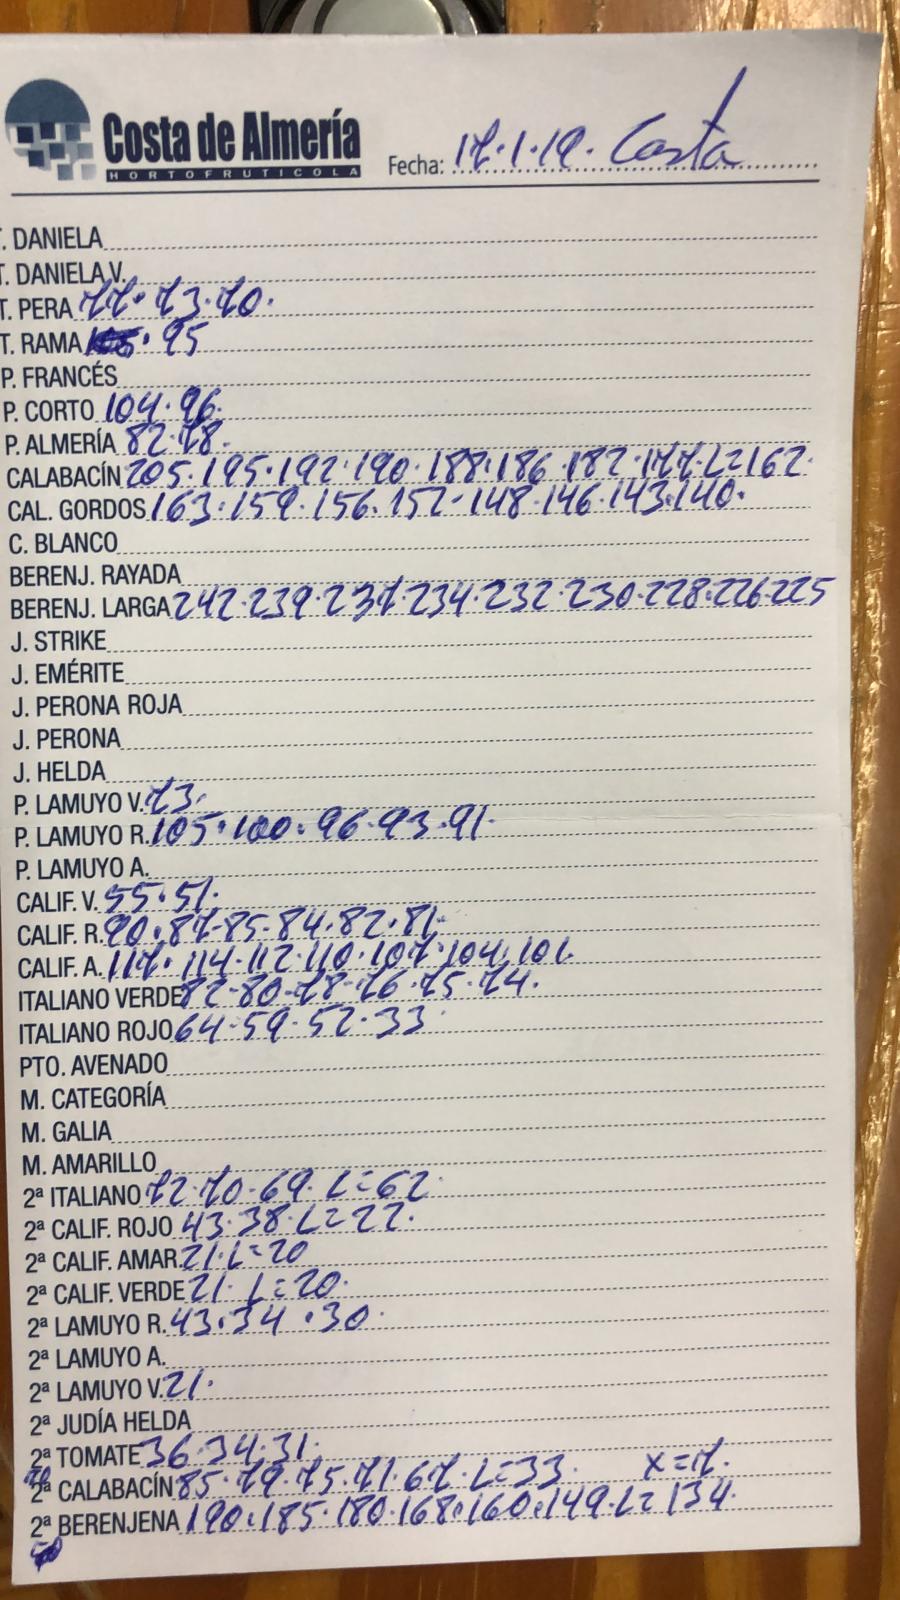 Costa de Almería
HORTOFRUTICOLA
Fecha: 17.1.19. Costa
T. DANIELA
T. DANIELA V.
T. PERA 77. 73. 70.
T. RAMA 95
P. FRANCÉS
P. CORTO 104. 96.
P. ALMERÍA 82. 78.
CALABACÍN 205. 195. 192. 190. 188. 186. 182. 177. L=162.
CAL. GORDOS 163. 159. 156. 152. 148. 146. 143. 140.
C. BLANCO
BERENJ. RAYADA
BERENJ. LARGA 242. 239. 237. 234. 232. 230. 228. 226. 225
J. STRIKE
J. EMÉRITE
J. PERONA ROJA
J. PERONA
J. HELDA
P. LAMUYO V. 73.
P. LAMUYO R. 105. 100. 96. 93. 91.
P. LAMUYO A.
CALIF. V. 55. 51.
CALIF. R. 90. 87. 85. 84. 82. 81.
CALIF. A. 117. 114. 112. 110. 107. 104. 101.
ITALIANO VERDE 82. 80. 78. 76. 75. 74.
ITALIANO ROJO 64. 59. 52. 33.
PTO. AVENADO
M. CATEGORÍA
M. GALIA
M. AMARILLO
2ª ITALIANO 72. 70. 69. L=62.
2ª CALIF. ROJO 43. 38. L=22.
2ª CALIF. AMAR. 21. L=20
2ª CALIF. VERDE 21. L=20.
2ª LAMUYO R. 43. 34. 30.
2ª LAMUYO A.
2ª LAMUYO V. 21.
2ª JUDÍA HELDA
2ª TOMATE 36. 34. 31.
2ª CALABACÍN 85. 79. 75. 71. 67. L=33. X=7.
2ª BERENJENA 190. 185. 180. 168. 160. 149. L=134.